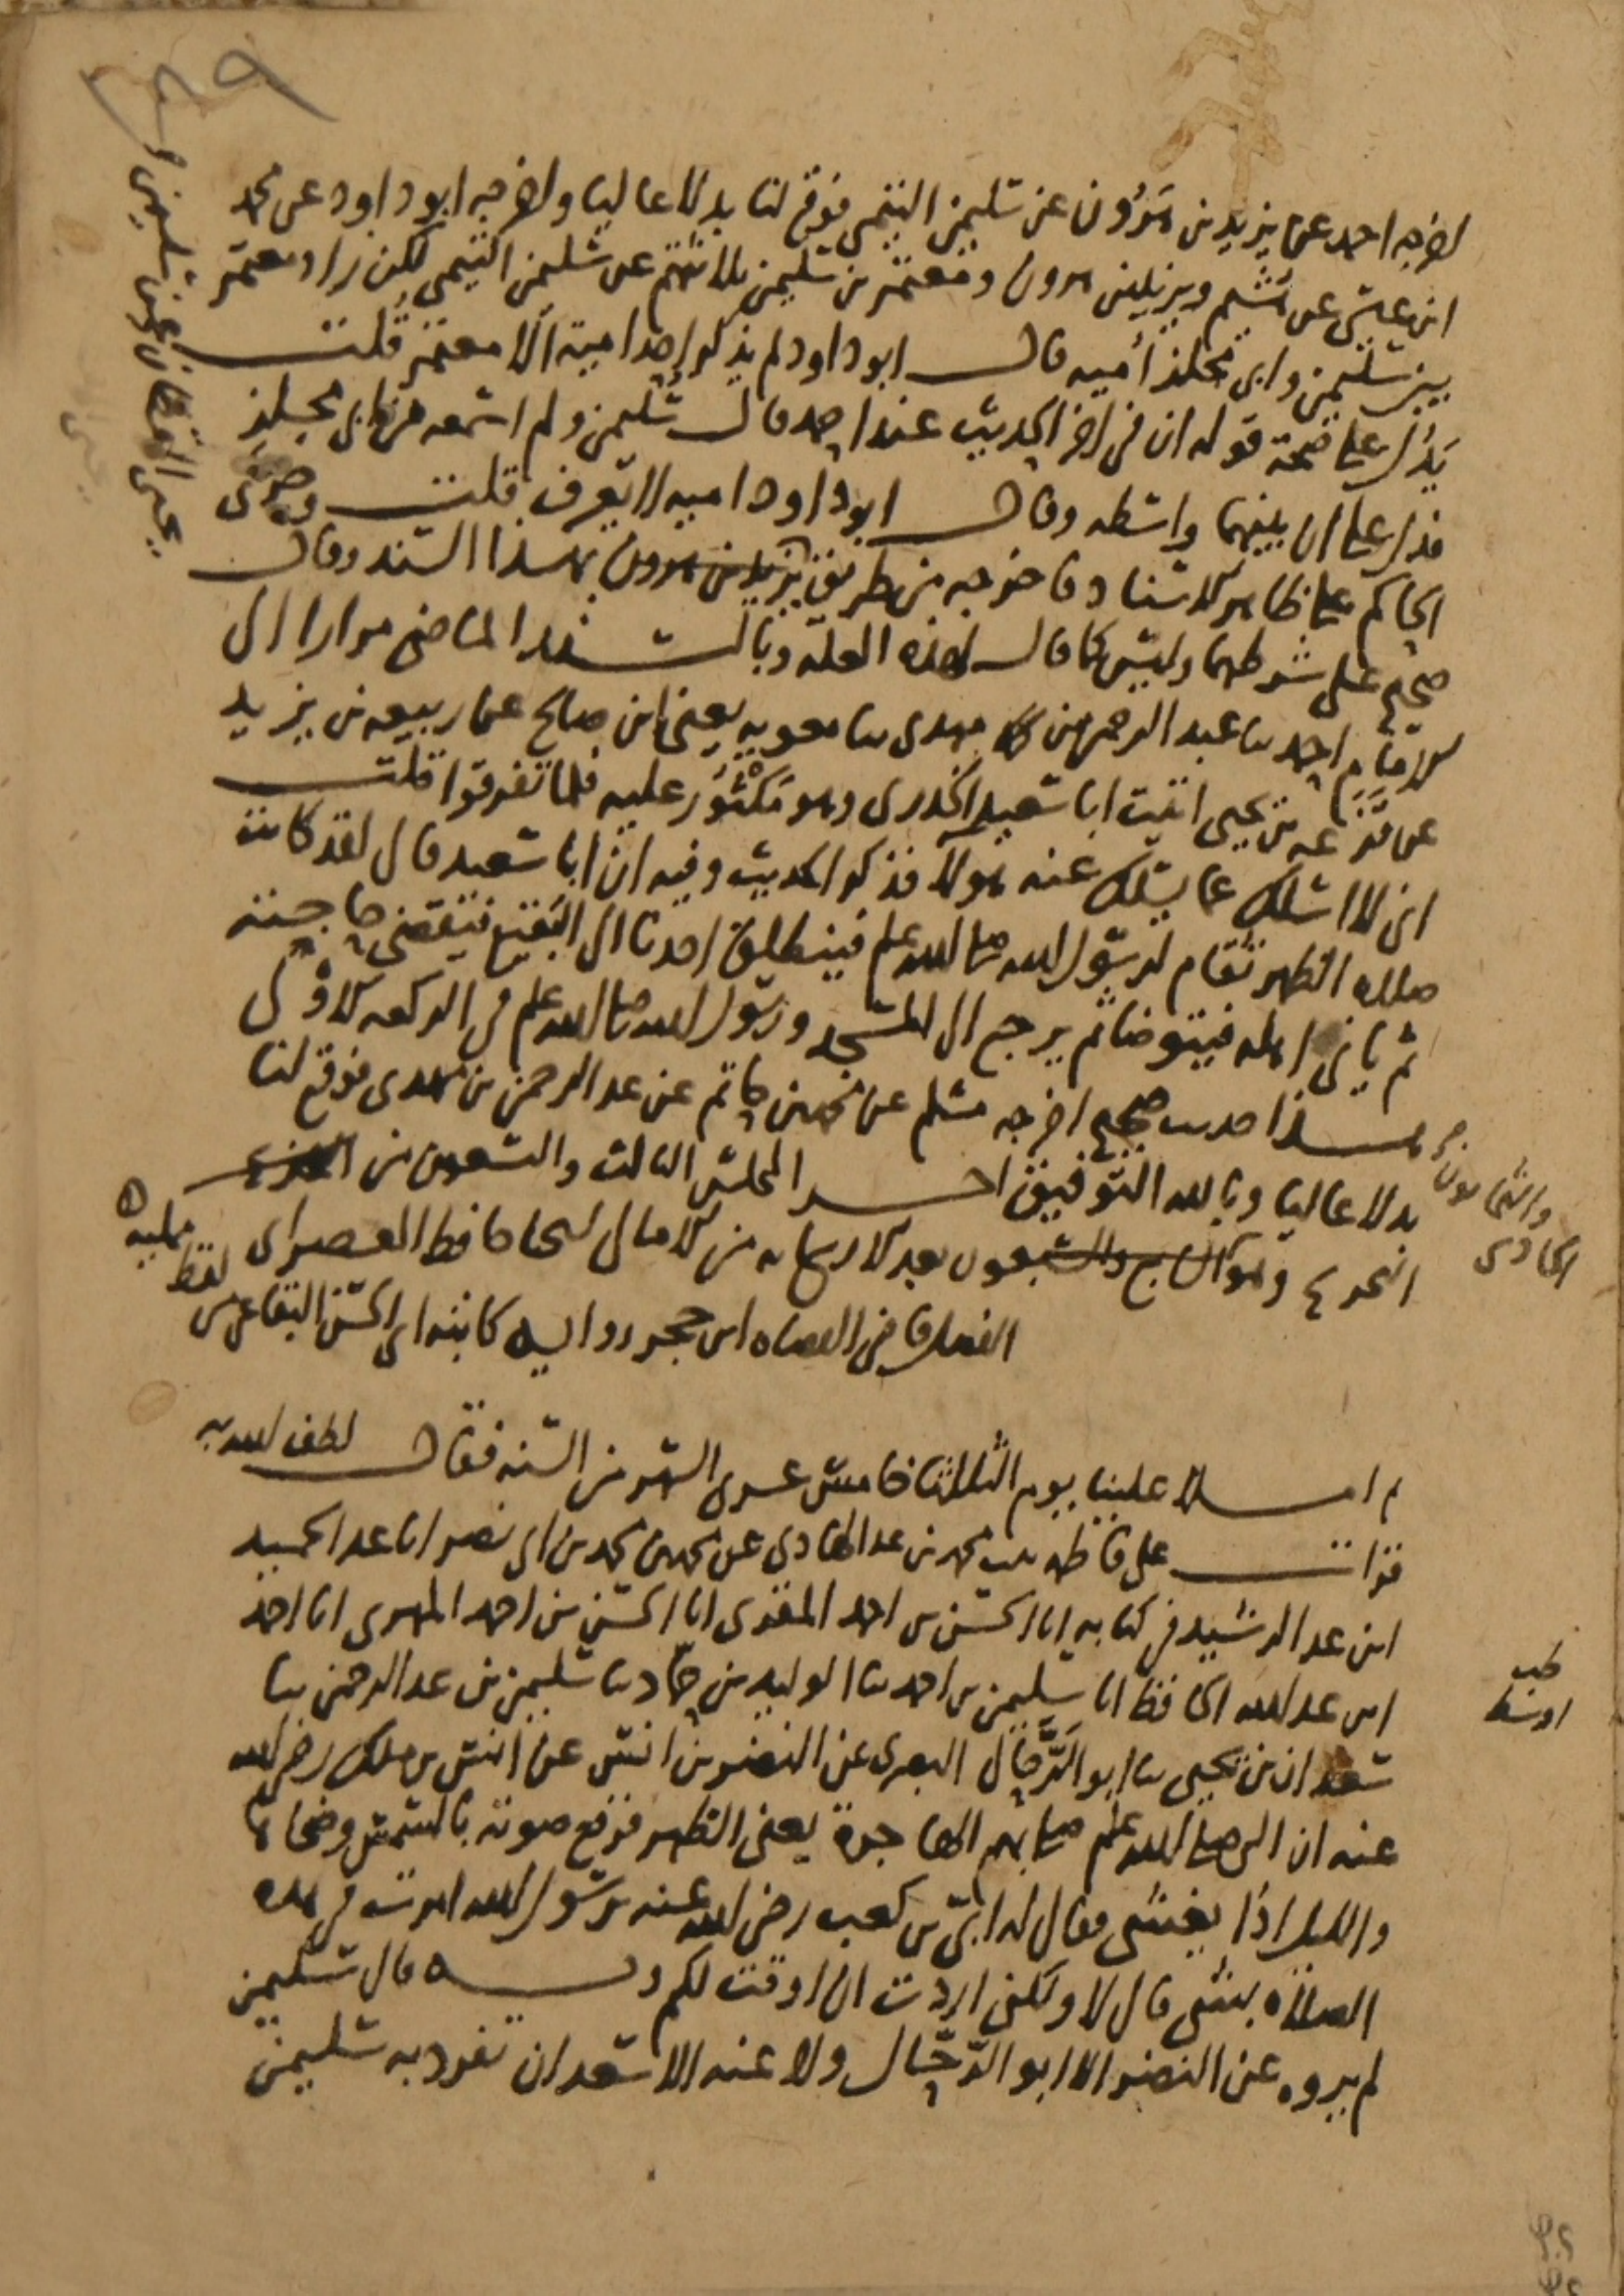 اخرجه احمد عن يزيد بن هرون عن سليمن التيمي فوقع لنا بدلا عاليا واخرجه ابو داود عن محمد
ابن عيسى عن هشيم ويزيد بن هرون ومعتمر بن سليمن ثلاثتهم عن سليمن التيمي لكن زاد معتمر
بين سليمن وابي مجلز أميه قال ابو داود لم يذكر احد امية الا معتمر قلت
يدل على صحة قوله ان في اخر الحديث عند احمد قال سليمن ولم اسمعه من ابي مجلز
فدل على ان بينهما واسطه وقال ابو داود اميه لا يعرف قلت وجرى
الحاكم على ظاهر الاسناد فاخرجه من طريق يزيد بن هرون بهذا السند وقال
صحيح على شرطهما وليس كما قال لهذه العلة وبالسند الماضي مرارا الى
الامام احمد سا عبد الرحمن بن مهدى سا معويه يعني ابن صالح عن ربيعه بن يزيد
عن قزعه بن يحيى اتيت ابا سعيد الخدرى وهو مكثور عليه فلما تفرقوا قلت
انى لا اسلك عما يسلك عنه هولا فذكر الحديث وفيه ان ابا سعيد قال لقد كانت
صلاه الظهر تقام لرسول الله صلى الله علم فينطلق احدنا الى البقيع فيقضي حاجته
ثم ياتي اهله فيتوضا ثم يرجع الى المسجد ورسول الله صلى الله علم في الركعه الاولى
هذا حديث صحيح اخرجه مسلم عن محمد بن حاتم عن عبد الرحمن بن مهدى فوقع لنا
بدلا عاليا وبالله التوفيق اخر المجلس الثالث والتسعين من
التخريج وهو الحادى والثمانون بعد الاربعمايه من الامالى لشيخنا حافظ العصر ابى
الفضل قاضي القضاه ابن حجر رواية كاتبه ابي الحسن البقاعي من لفظ ممليه ه

ثم املا علينا يوم الثلاثا خامس عشرى الشهر من السنه فقال لطف الله به
قرات على فاطمه بنت محمد بن عبد الهادي عن محمد بن محمد بن ابي نصر انا عبد الحميد
ابن عبد الرشيد في كتابه انا الحسن بن احمد المقرى انا الحسن بن احمد المهرى انا احمد
ابن عبد الله الحافظ انا سليمن بن احمد سا الوليد بن حماد سا سليمن بن عبد الرحمن سا
سعدان بن يحيى سا ابو الرَّحّال البصرى عن النضر بن انس عن انس بن ملك رضي الله
عنه ان النبي صلى الله علم صلى بهم الهاجرة يعني الظهر فرفع صوته بالشمس وضحاها
والليل اذا يغشى فقال له ابيّ بن كعب رضي الله عنه يرسول الله امرت في هذه
الصلاه بشي قال لا ولكني اردت ان اوقت لكم وبه قال سليمن
لم يروه عن النضر الا ابو الرّحّال ولا عنه الا سعدان تفرد به سليمن
طب
اوسط